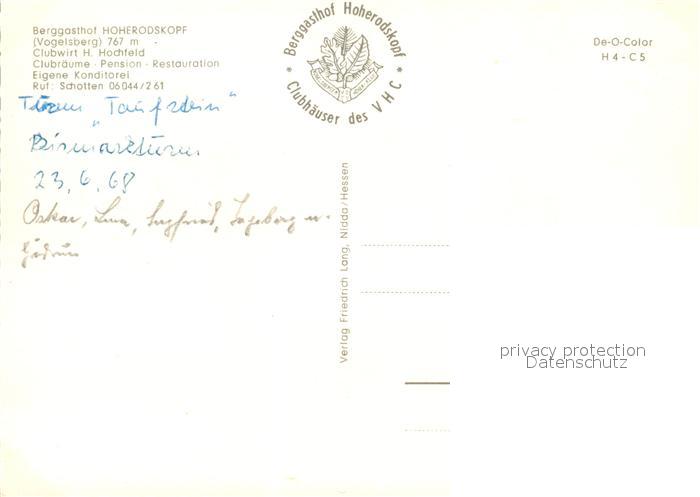 Berggasthof HOHERODSKOPF
(Vogelsberg) 767 m
Clubwirt H. Hochfeld
Clubräume · Pension · Restauration
Eigene Konditorei
Ruf: Schotten 06044/261
Turm "Taufstein"
Bismarkturm
23.6.68
Oskar, Siegfried, Ingeborg u.
Berggasthof Hoherodskopf
* Clubhäuser des VHC *
De-O-Color
H4-C5
Verlag Friedrich Lang, Nidda/Hessen
privacy protection
Datenschutz